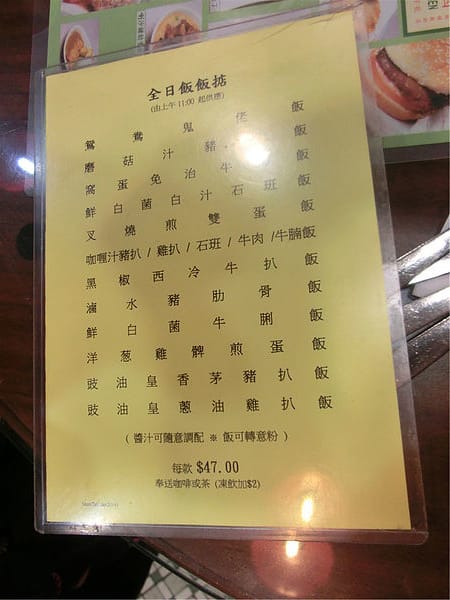 全日飯飯掂
(由上午 11:00 起供應)
鴛鴦鬼佬飯
磨菇汁豬 飯
窩蛋免治牛 飯
鮮白菌白汁石班飯
叉燒煎雙蛋飯
咖喱汁豬扒 / 雞扒 / 石班 / 牛肉 /牛腩飯
黑椒西冷牛扒飯
滷水豬肋骨飯
鮮白菌牛脷飯
洋葱雞髀煎蛋飯
豉油皇香茅豬扒飯
豉油皇蔥油雞扒飯
( 醬汁可隨意調配 ※ 飯可轉意粉 )
每款 $47.00
奉送咖啡或茶 (凍飲加$2)